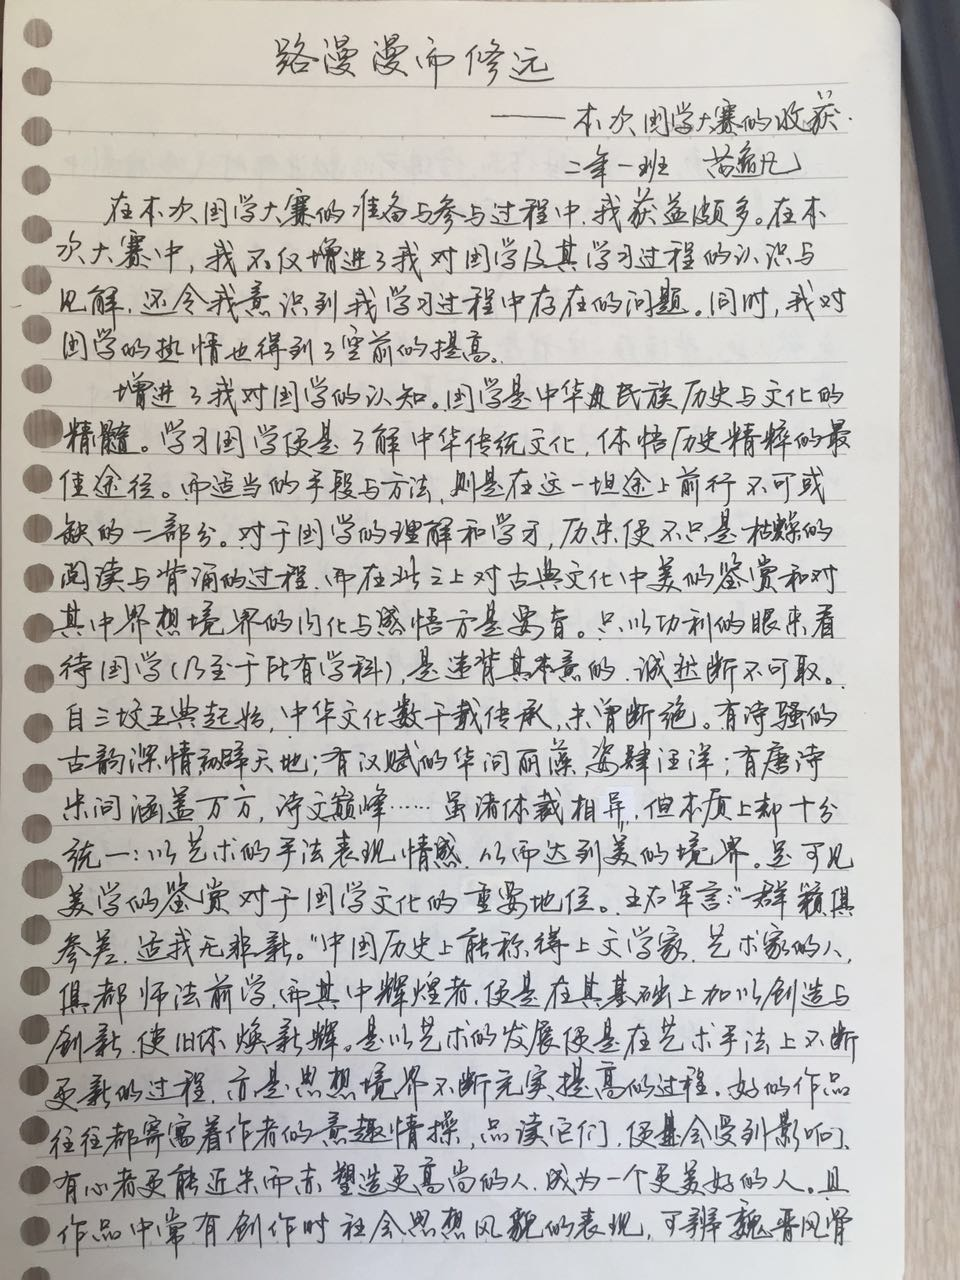 路漫漫而修远
——本次国学大赛的收获.
二年一班 苗
在本次国学大赛的准备与参与过程中,我获益颇多。在本
次大赛中,我不仅增进了我对国学及其学习过程的认识与
见解,还令我意识到我学习过程中存在的问题。同时,我对
国学的热情也得到了空前的提高。
增进了我对国学的认知。国学是中华民族历史与文化的
精髓。学习国学便是了解中华传统文化,体悟历史精粹的最
佳途径。而适当的手段与方法,则是在这一坦途上前行不可或
缺的一部分。对于国学的理解和学习,历来便不只是枯燥的
阅读与背诵的过程,而在此之上对古典文化中美的鉴赏和对
其中思想境界的内化与感悟方是要旨。只以功利的眼来看
待国学(乃至于所有学科),是违背其本意的,诚然断不可取。
自三坟五典起始,中华文化数千载传承,未曾断绝。有诗骚的
古韵深情初辟天地;有汉赋的华词丽藻,姿肆汪洋;有唐诗
宋词涵盖万方,诗文巅峰……虽诸体裁相异,但本质上却十分
统一:以艺术的手法表现情感,从而达到美的境界。足可见
美学的鉴赏对于国学文化的重要地位。王右军言:“群籁俱
参差,适我无非新。”中国历史上能称得上文学家,艺术家的人,
俱都师法前学,而其中辉煌者,便是在其基础上加以创造与
创新,使旧体焕新辉。是以艺术的发展便是在艺术手法上不断
更新的过程,亦是思想境界不断充实提高的过程。好的作品
往往都寄寓着作者的意趣情操,品读它们,便是会受到影响,
有心者更能近朱而赤,塑造更高尚的人,成为一个更美好的人。且
作品中常有创作时社会思想风貌的表现,可辨魏晋风骨